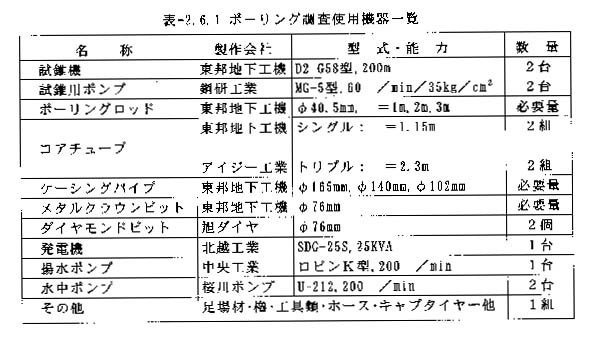 表-2.6.1 ボーリング調査使用機器一覧
名 称 製作会社 型 式・能 力 数 量
試錐機 東邦地下工機 D2 G58型,200m 2台
試錐用ポンプ 鉱研工業 MG-5型,60 /min/35kg/cm² 2台
ボーリングロッド 東邦地下工機 φ40.5mm, =1m,2m,3m 必要量
コアチューブ 東邦地下工機 シングル: =1.15m 2組
アイジー工業 トリプル: =2.3m 2組
ケーシングパイプ 東邦地下工機 φ165mm,φ140mm,φ102mm 必要量
メタルクラウンビット 東邦地下工機 φ76mm 必要量
ダイヤモンドビット 旭ダイヤ φ76mm 2個
発電機 北越工業 SDG-25S,25KVA 1台
揚水ポンプ 中央工業 ロビンK型,200 /min 1台
水中ポンプ 桜川ポンプ U-212,200 /min 2台
その他 足場材・櫓・工具類・ホース・キャブタイヤー他 1組